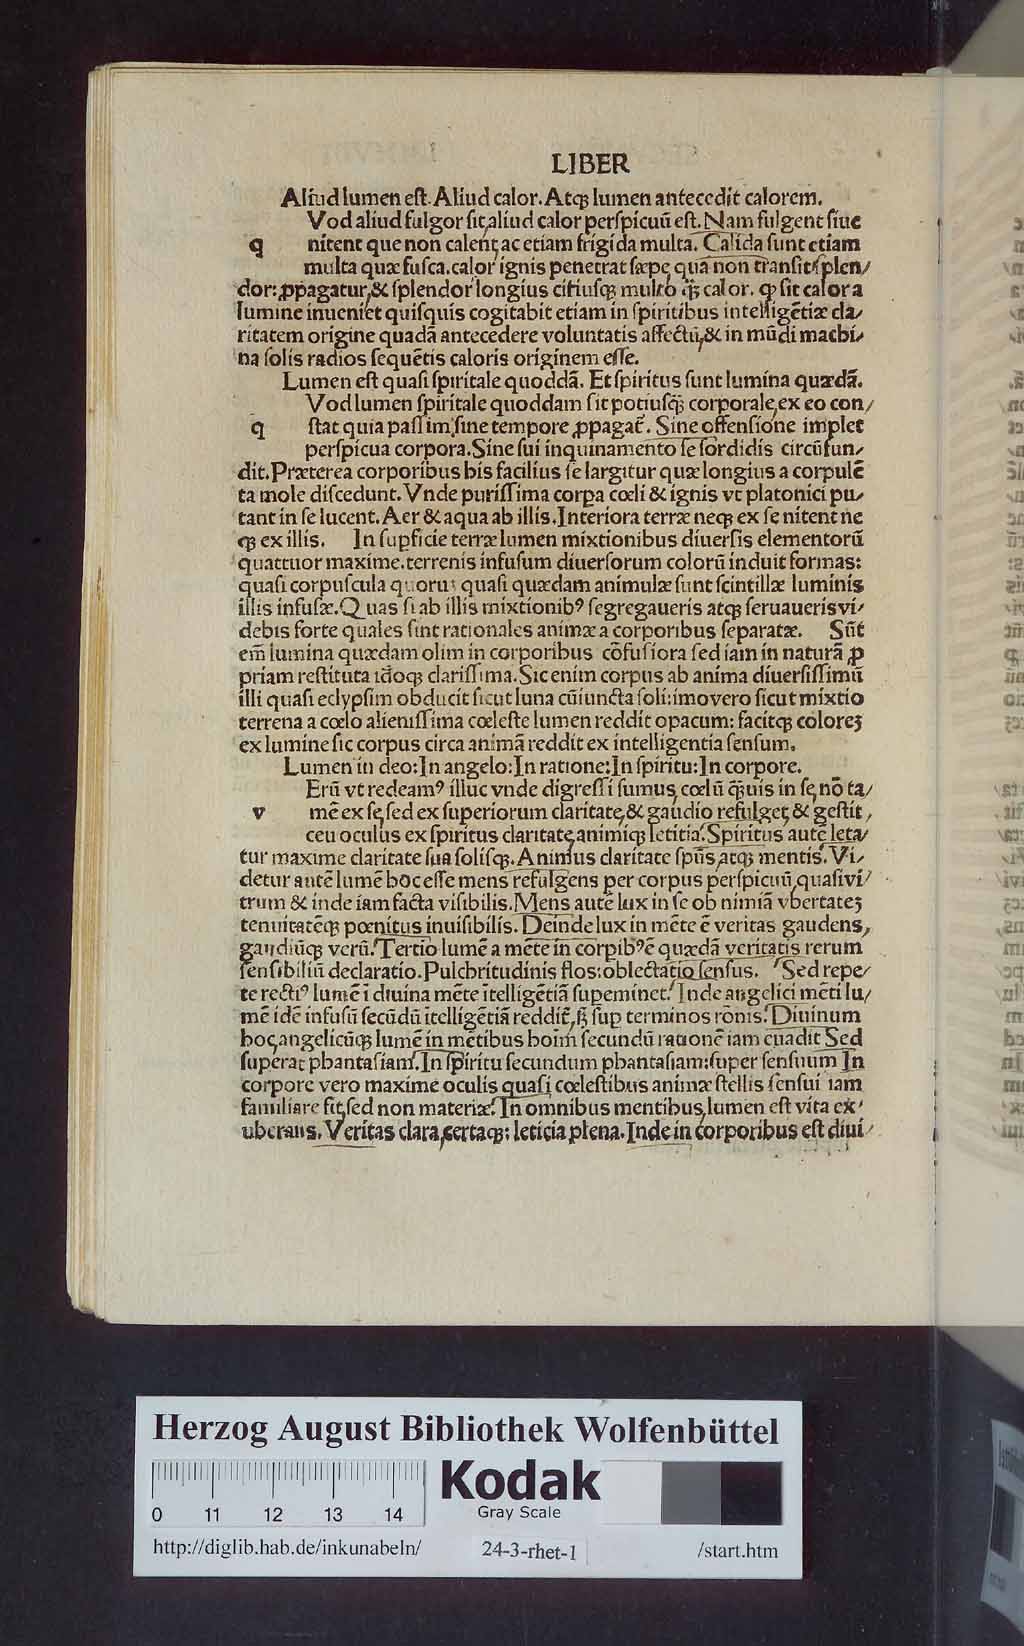 LIBER
Aliud lumen eſt. Aliud calor. Atqꝫ lumen antecedit calorem.
Vod aliud fulgor ſit, aliud calor perſpicuū eſt. Nam fulgent ſiue
q nitent que non calent, ac etiam frigida multa. Calida ſunt etiam
multa quæ fuſca. calor ignis penetrat ſæpe, qua non tranſit ſplen/
dor: ꝓpagatur, & ſplendor longius citiuſqꝫ multo q̄ꝫ calor. ꝙ ſit calor a
lumine inueniet quiſquis cogitabit etiam in ſpiritibus intelligētiæ cla/
ritatem origine quadā antecedere voluntatis affectū, & in mūdi machi/
na ſolis radios ſequētis caloris originem eſſe.
Lumen eſt quaſi ſpiritale quoddā. Et ſpiritus ſunt lumina quædā.
Vod lumen ſpiritale quoddam ſit potiuſq̄ꝫ corporale, ex eo con/
q ſtat quia paſſim ſine tempore ꝓpagat̄. Sine offenſione implet
perſpicua corpora. Sine ſui inquinamento ſe ſordidis circūfun/
dit. Præterea corporibus his facilius ſe largitur quæ longius a corpulē
ta mole diſcedunt. Vnde puriſſima corpa cœli & ignis vt platonici pu/
tant in ſe lucent. Aer & aqua ab illis. Interiora terræ neqꝫ ex ſe nitent ne
qꝫ ex illis. In ſupficie terræ lumen mixtionibus diuerſis elementorū
quattuor maxime. terrenis infuſum diuerſorum colorū induit formas:
quaſi corpuſcula quorum quaſi quædam animulæ ſunt ſcintillæ luminis
illis infuſæ. Quas ſi ab illis mixtionibꝰ ſegregaueris atqꝫ ſeruaueris vi/
debis forte quales ſint rationales animæ a corporibus ſeparatæ. Sūt
em̄ lumina quædam olim in corporibus cōfuſiora ſed iam in naturā ꝓ
priam reſtituta idoqꝫ clariſſima. Sic enim corpus ab anima diuerſiſſimū
illi quaſi eclypſim obducit ſicut luna cū iuncta ſoli: imo vero ſicut mixtio
terrena a cœlo alieniſſima cœleſte lumen reddit opacum: facitqꝫ coloreꝫ
ex lumine ſic corpus circa animā reddit ex intelligentia ſenſum.
Lumen in deo: In angelo: In ratione: In ſpiritu: In corpore.
Erū vt redeamꝰ illuc vnde digreſſi ſumus, cœlū q̄ꝫuis in ſe, nō ta/
v mē ex ſe, ſed ex ſuperiorum claritate, & gaudio refulget, & geſtit,
ceu oculus ex ſpiritus claritate, animiqꝫ letitia. Spiritus autē leta/
tur maxime claritate ſua ſoliſqꝫ. Animus claritate ſpūs, atqꝫ mentis. Vi/
detur autē lumē hoc eſſe mens refulgens per corpus perſpicuū, quaſi vi/
trum & inde iam facta viſibilis. Mens autē lux in ſe ob nimiā vbertateꝫ
tenuitatēqꝫ pœnitus inuiſibilis. Deinde lux in mēte ē veritas gaudens,
gaudiūqꝫ verū. Tertio lumē a mēte in corpibꝰ ē quædā veritatis rerum
ſenſibiliū declaratio. Pulchritudinis flos: oblectatio ſenſus. Sed repe/
te rectiꝰ lumē ī diuina mēte ītelligētiā ſupeminet. Inde angelici mēti lu/
mē idē infuſū ſecūdū ītelligētiā reddit̄, ſꝫ ſup terminos rōnis. Diuinum
hoc, angelicūqꝫ lumē in mētibus hoīm ſecundū rationē iam euadit Sed
ſuperat phantaſiam. In ſpiritu ſecundum phantaſiam: ſuper ſenſuum In
corpore vero maxime oculis quaſi, cœleſtibus animæ ſtellis ſenſui iam
familiare fit, ſed non materiæ. In omnibus mentibus, lumen eſt vita ex/
uberans. Veritas clara, certaqꝫ: leticia plena. Inde in corporibus eſt diui/
Herzog August Bibliothek Wolfenbüttel
0 11 12 13 14
Kodak
Gray Scale
http://diglib.hab.de/inkunabeln/ 24-3-rhet-1 /start.htm